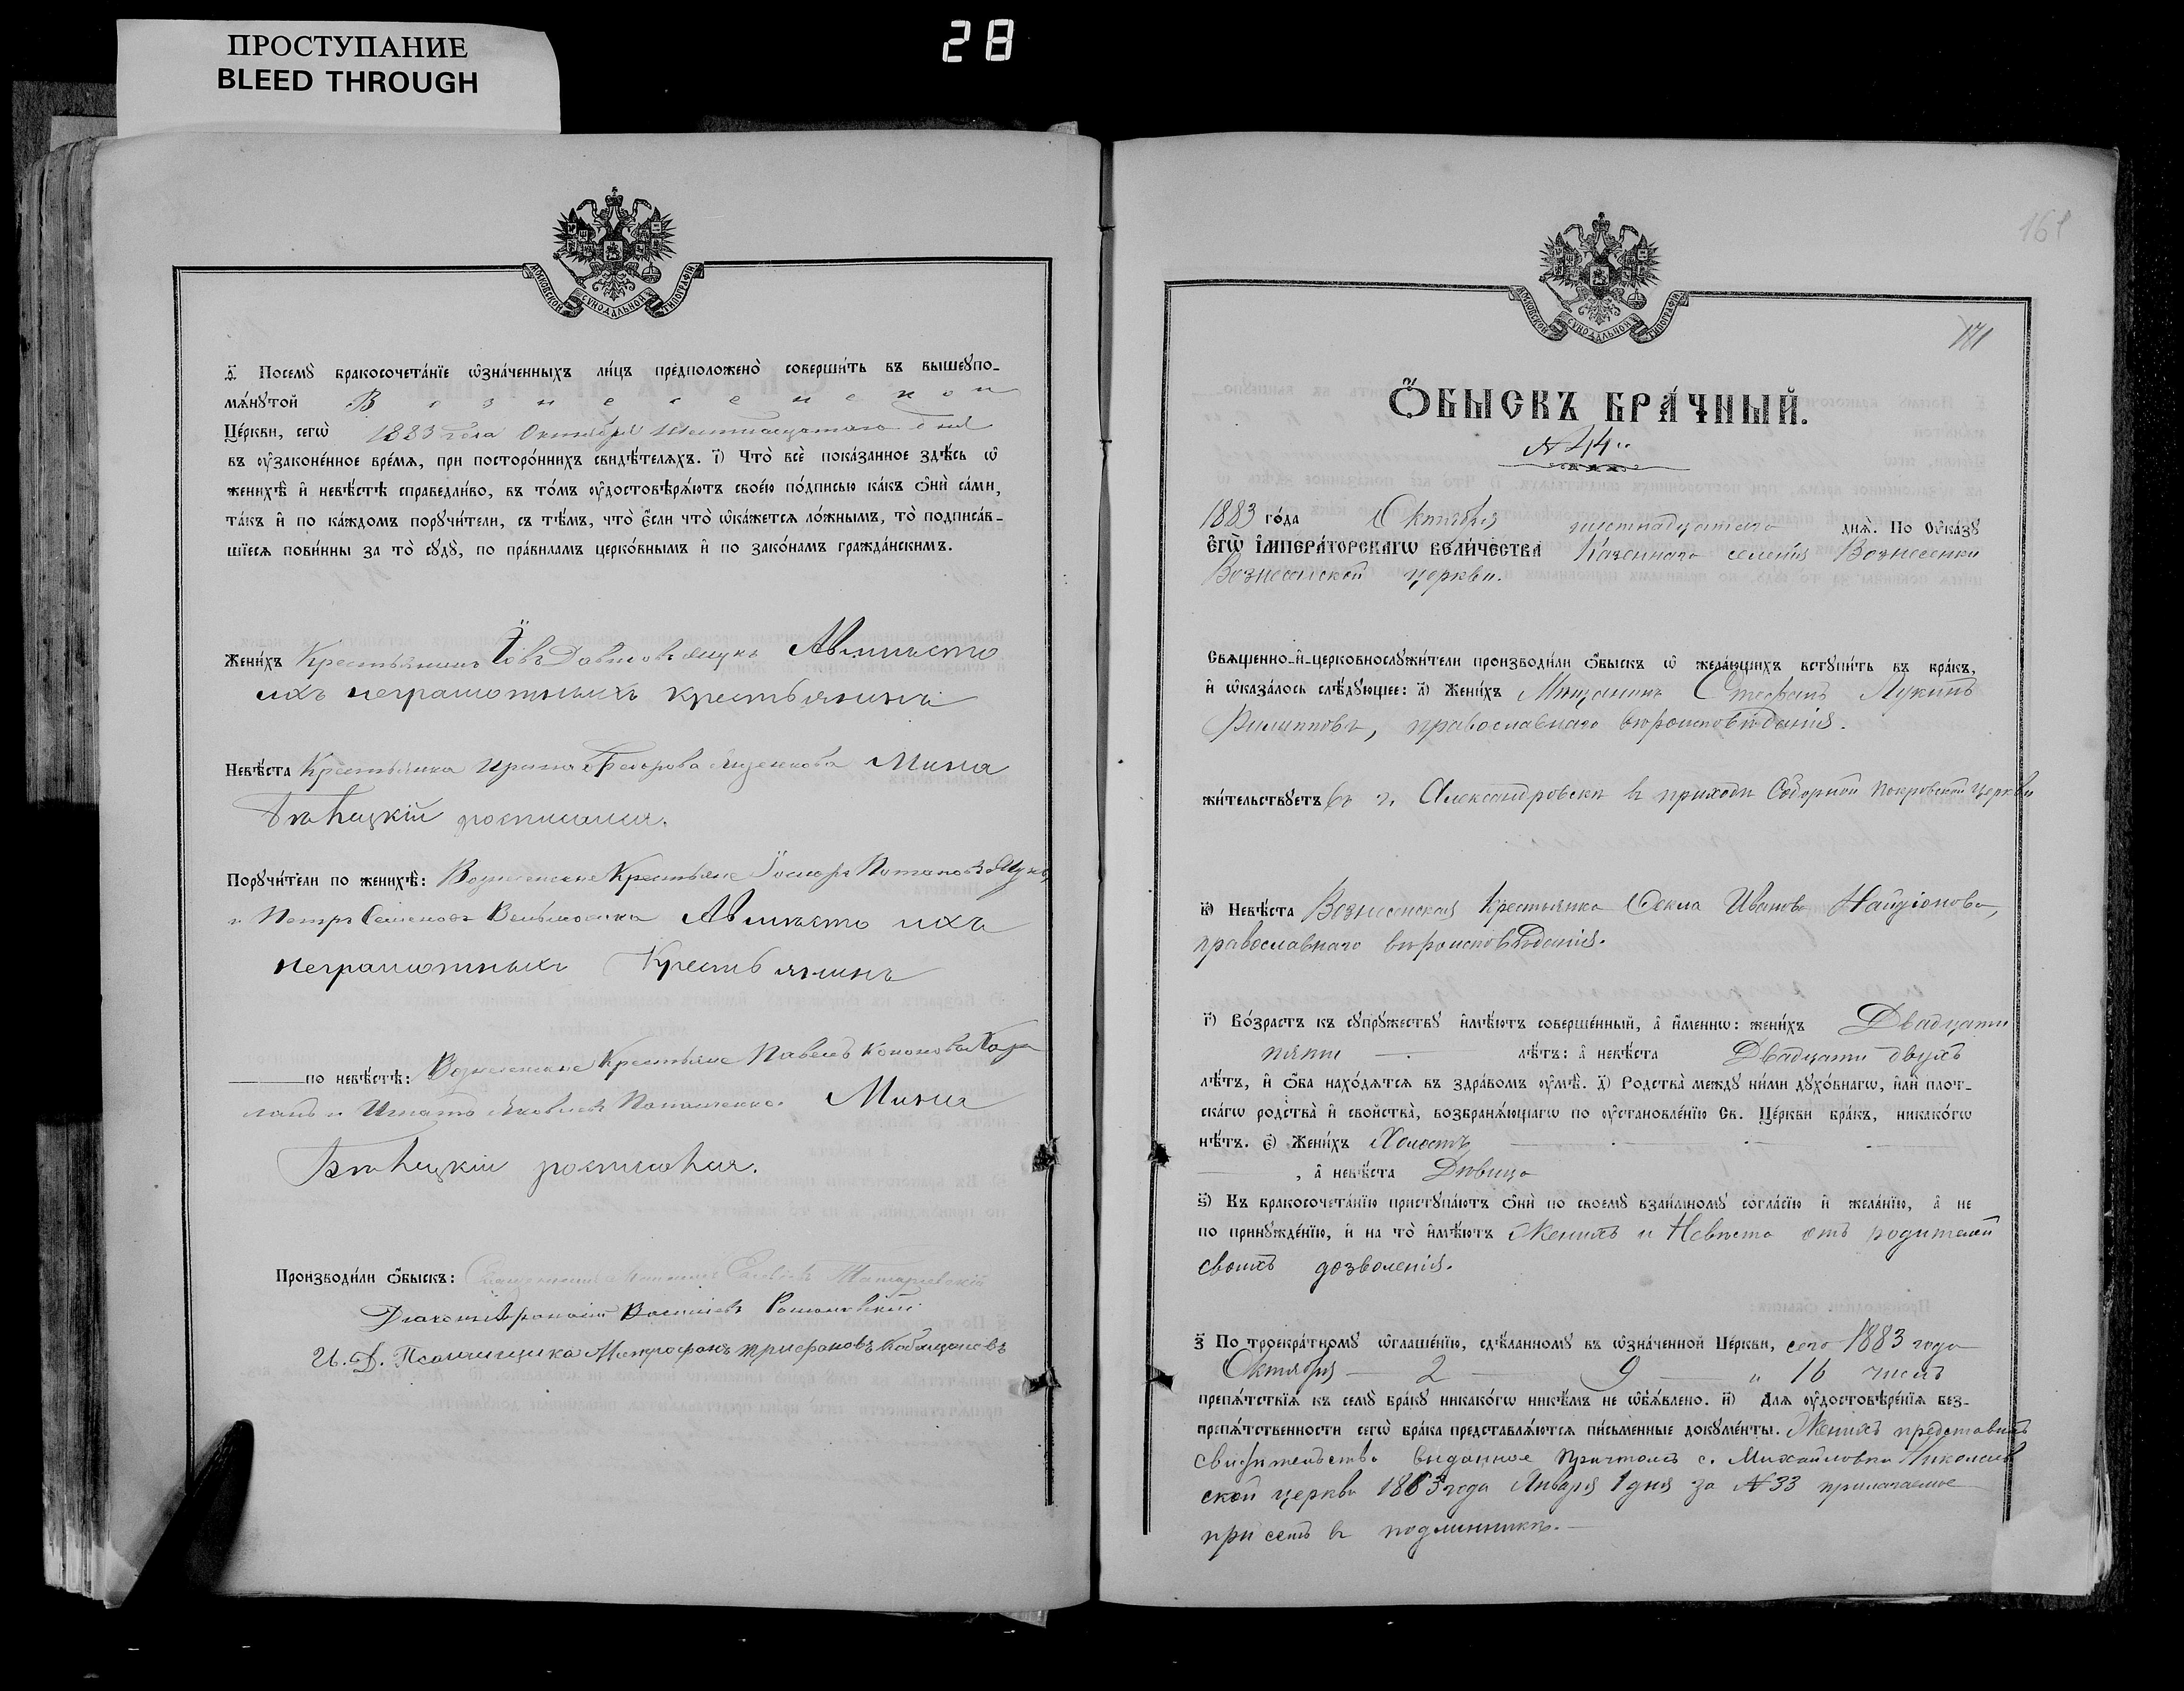 ПРОСТУПАНИЕ
BLEED THROUGH
28
МОСКОВСКОЙ СѴНОДАЛЬНОЙ ТИПОГРАФІИ
Посемꙋ бракосочета́нїе ѡ҆зна́ченныхъ ли́цъ предположено̀ соверши́ть въ вышеꙋпо-
мѧ́нꙋтой Вознесенской
Це́ркви, сегѡ̀ 1883 года Октября шестнадцатаго дня
въ ᲂу҆законе́нное вре́мѧ, при посторо́ннихъ свидѣ́телѧхъ. і҃) Что̀ всѐ пока́занное здѣ́сь ѡ҆
женихѣ̀ и҆ невѣ́стѣ справедли́во, въ то́мъ ᲂу҆достовѣрѧ́ютъ свое́ю по́дписью ка́къ ѻ҆нѝ са́ми,
та́къ и҆ по ка́ждомъ порꙋчи́тели, съ тѣ́мъ, что̀ є҆́сли что̀ ѡ҆ка́жетсѧ ло́жнымъ, то̀ подписа́в-
шїесѧ пови́нны за то̀ сꙋдꙋ̀, по пра́виламъ церко́внымъ и҆ по зако́намъ гражда́нскимъ.
Жени́хъ Крестьянинъ Іовъ Давидовъ Авмѣсто
ихъ неграмотныхъ крестьянинъ
Невѣ́ста Крестьянка Ирина Федорова Мина
росписался.
Порꙋчи́тели по женихѣ̀: Вознесенские Крестьяне Потаповъ
и Петръ Семеновъ Авмѣсто ихъ
неграмотныхъ Крестьянинъ
по невѣ́стѣ: Вознесенские Крестьяне Павелъ Кононовъ
и Игнатъ Яковлевъ Мина
росписался.
Производи́ли ѻ҆́быскъ: Священникъ
Діаконъ Василіевъ
И. Д. Псаломщика Митрофанъ Трифановъ
161
МОСКОВСКОЙ СѴНОДАЛЬНОЙ ТИПОГРАФІИ
171
Ѻ҆́БЫСКЪ БРА́ЧНЫЙ.
№ 44
1883 го́да Октября шестнадцатаго днѧ̀. По Оу҆ка́зꙋ
Є҆ГѠ̀ І҆МПЕРА́ТОРСКАГѠ ВЕЛИ́ЧЕСТВА Казеннаго селенія Вознесенки
Вознесенской церкви.
Свѧще́нно-и҆-церковнослꙋжи́тели производи́ли ѻ҆́быскъ ѡ҆ жела́ющихъ встꙋпи́ть въ бра́къ,
и҆ ѡ҆каза́лось слѣ́дꙋющее: а҃) Жени́хъ Мѣщанинъ Стефанъ Лукинъ
Филипповъ, православнаго вѣроисповѣданія.
жи́тельствꙋетъ въ г. Александровскѣ въ приходѣ Соборной Покровской Церкви
в҃) Невѣ́ста Вознесенская крестьянка Фекла Иванова Найдіонова,
православнаго вѣроисповѣданія.
г҃) Во́зрастъ къ сꙋпрꙋ́жествꙋ и҆мѣ́ютъ соверше́нный, а҆ и҆́меннѡ: жени́хъ Двадцати
пяти лѣ́тъ: а҆ невѣ́ста Двадцати двухъ
лѣ́тъ, и҆ ѻ҆́ба нахо́дѧтсѧ въ здра́вомъ ᲂу҆мѣ̀. д҃) Родства̀ междꙋ ни́ми дꙋхо́внагѡ, и҆лѝ плот-
ска́гѡ родства̀ и҆ сво́йства, возбранѧ́ющагѡ по ᲂу҆становле́нїю Св. Це́ркви бра́къ, никако́гѡ
нѣ́тъ. є҃) Жени́хъ Холостъ
, а҆ невѣ́ста Дѣвица
ѕ҃) Къ бракосочета́нїю пристꙋпа́ютъ ѻ҆нѝ по своемꙋ̀ взаи́мномꙋ согла́сїю и҆ жела́нїю, а҆ не
по принꙋжде́нїю, и҆ на то̀ и҆мѣ́ютъ Женихъ и Невѣста отъ родителей
своихъ дозволенія.
з҃ По троекра́тномꙋ ѡ҆глаше́нїю, сдѣ́ланномꙋ въ ѡ҆зна́ченной Це́ркви, сего 1883 года
Октября 2 9 „ 16 числъ
препѧ́тствїѧ къ семꙋ̀ бра́кꙋ никако́гѡ никѣ́мъ не ѡ҆б̾ѧ́влено. и҃) Для ᲂу҆достовѣре́нїѧ без-
препѧ́тственности сегѡ̀ бра́ка представлѧ́ютсѧ пи́сьменные докꙋме́нты. Женихъ представилъ
свидѣтельство выданное Причтомъ с. Михайловки Николаев
ской церкви 1883 года Января 1 дня за № 33 прилагаемое
при семъ въ подлинникѣ.